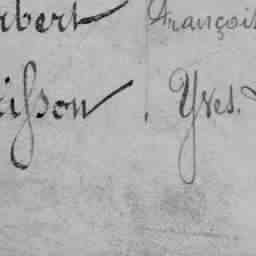 rbert François
isson, Yves.